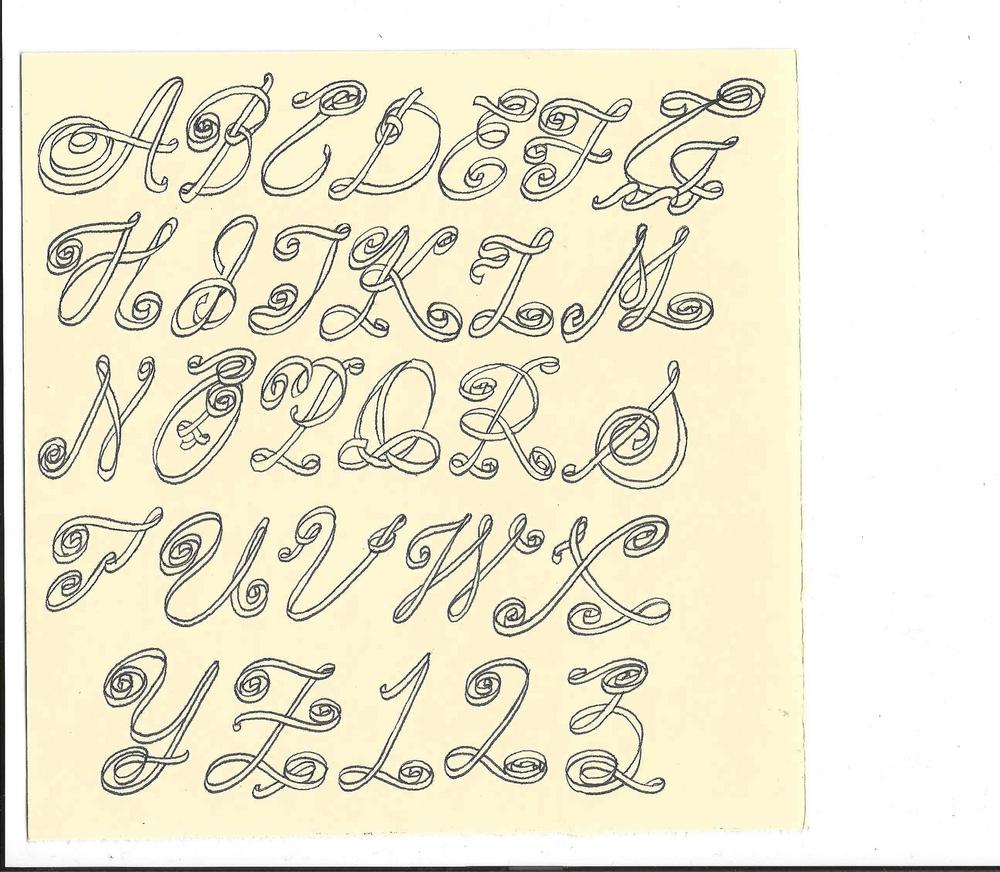 ABCDEFG
HIJKLM
NOPQRS
TUVWX
YZ123